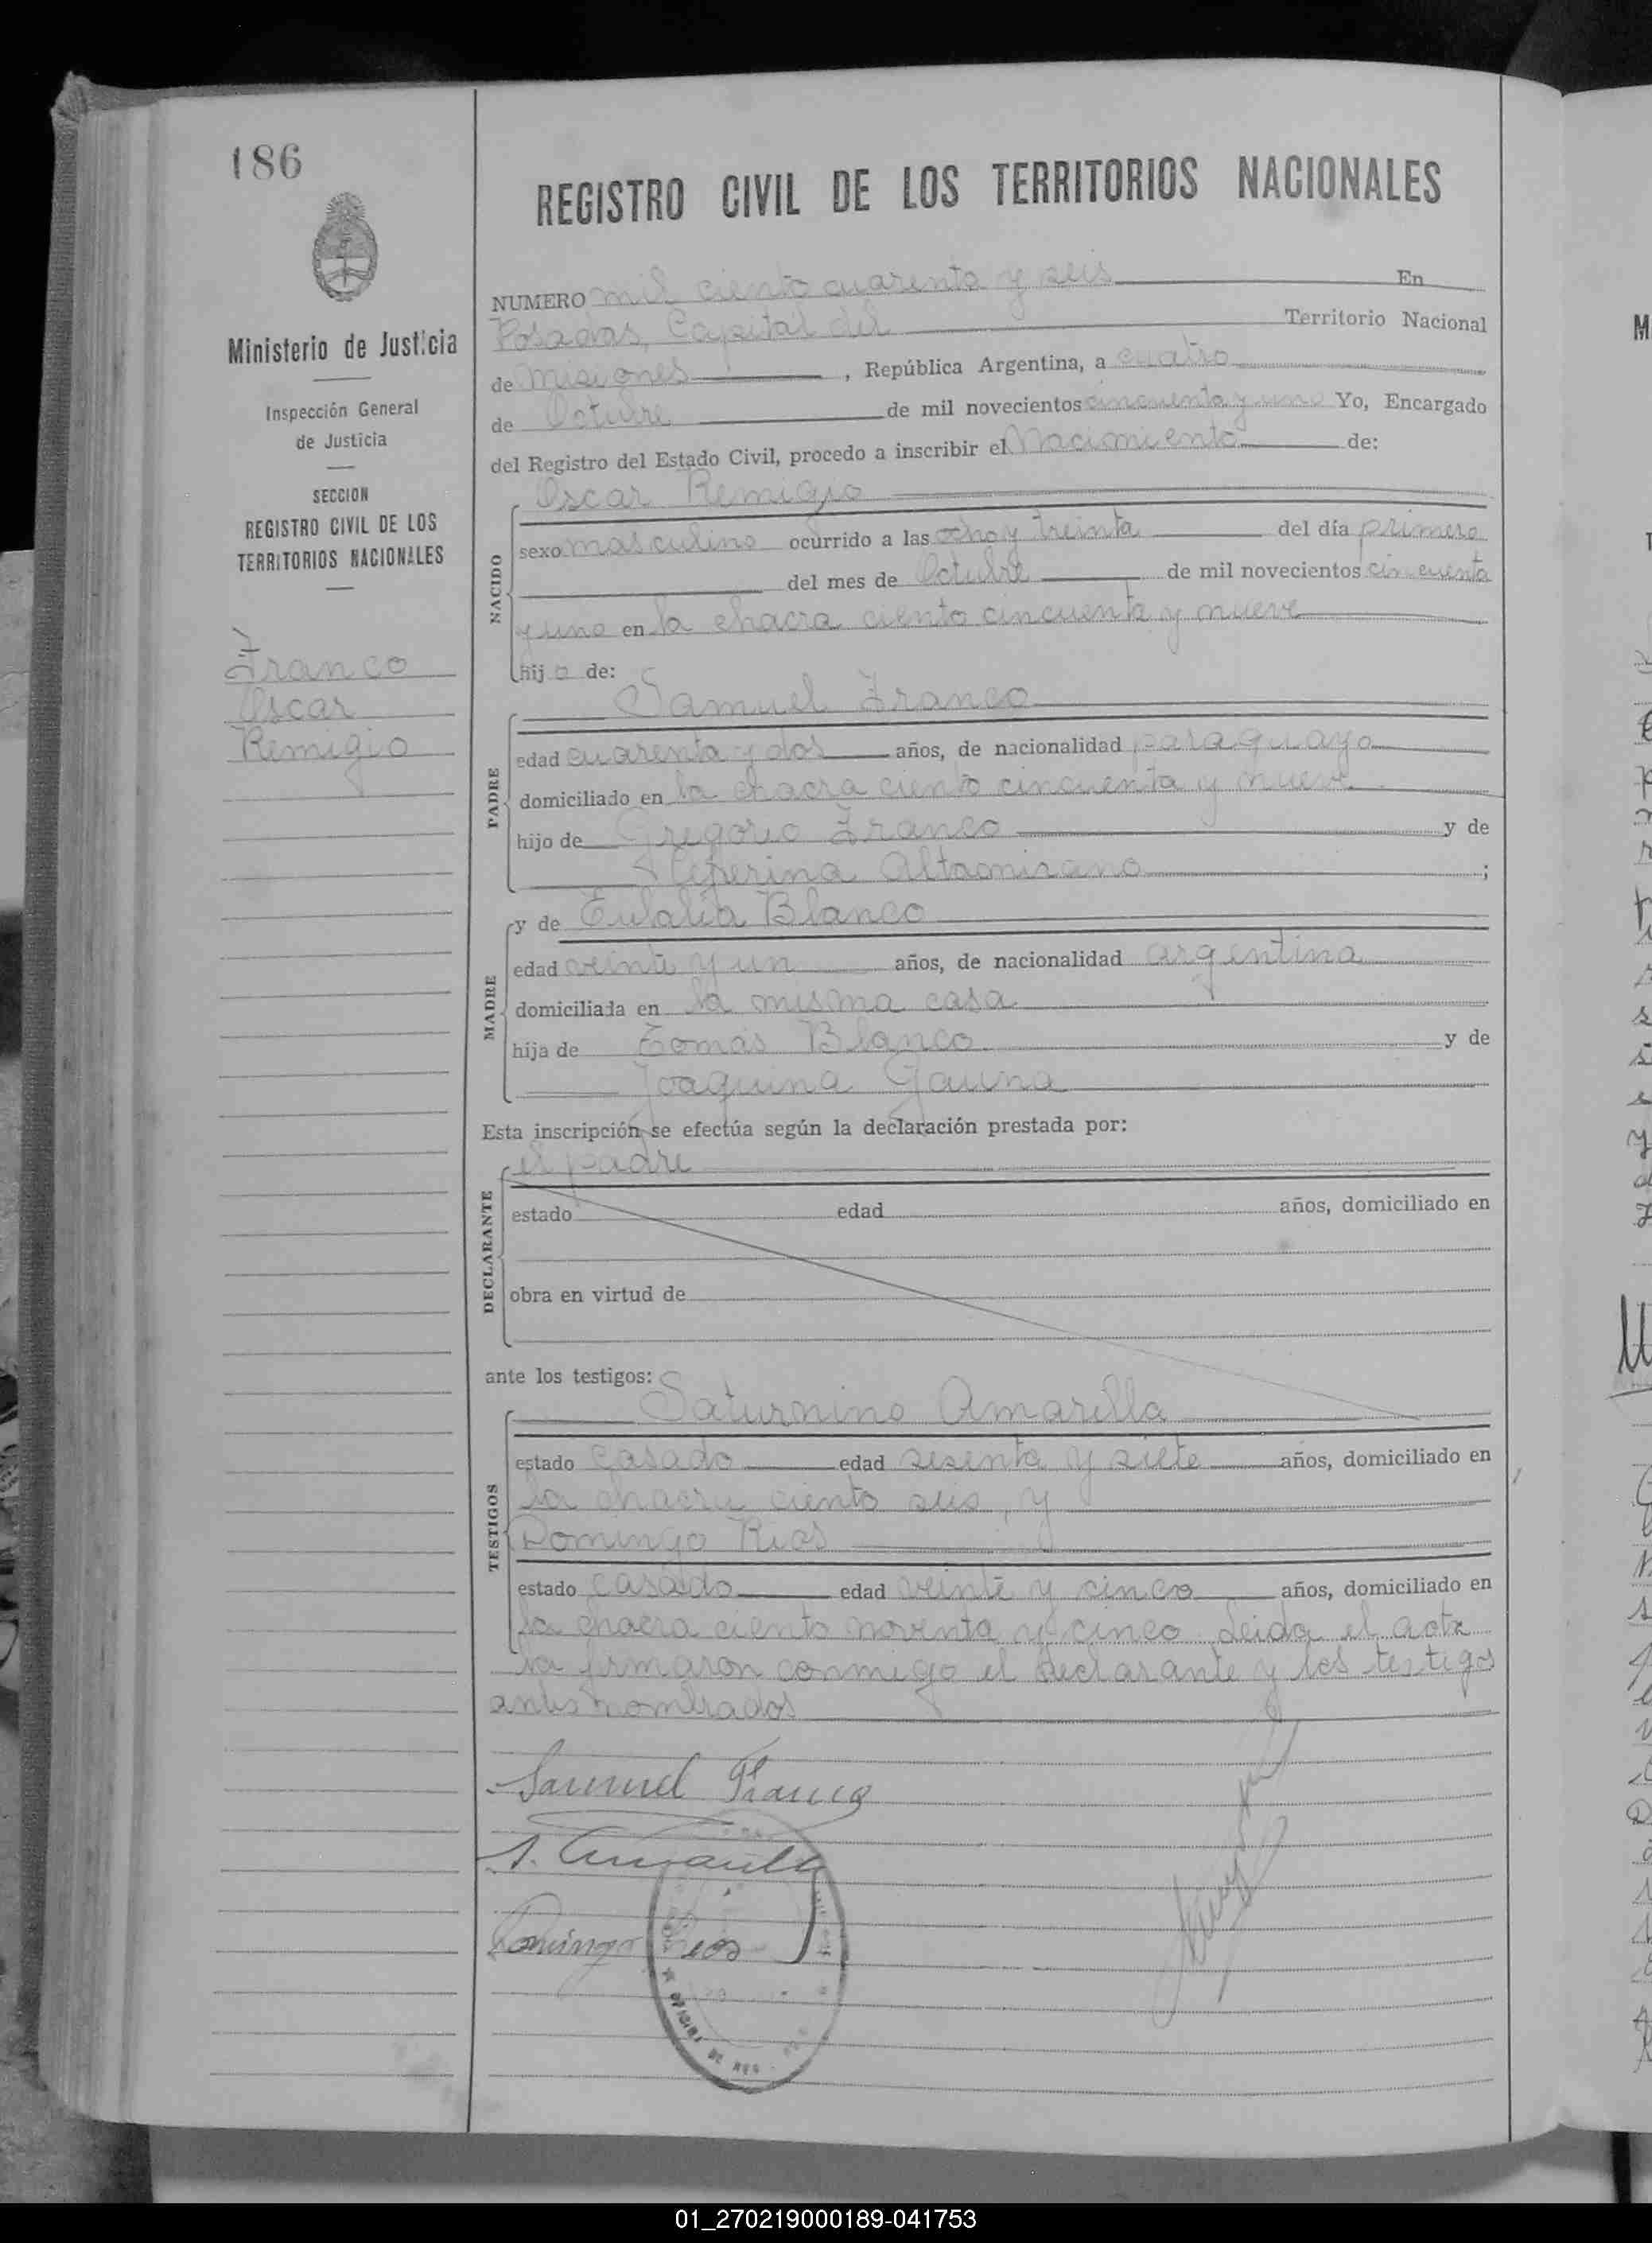 186
REGISTRO CIVIL DE LOS TERRITORIOS NACIONALES
Ministerio de Justicia
Inspección General
de Justicia
SECCION
REGISTRO CIVIL DE LOS
TERRITORIOS NACIONALES
Franco
Oscar
Remigio
NUMERO mil ciento cuarenta y seis En
Posadas, Capital del Territorio Nacional
de Misiones, República Argentina, a cuatro
de Octubre de mil novecientos cincuenta y uno Yo, Encargado
del Registro del Estado Civil, procedo a inscribir el Nacimiento de:
Oscar Remigio
NACIDO
sexo masculino ocurrido a las ocho y treinta del día primero
del mes de Octubre de mil novecientos cincuenta
y uno en la chacra ciento cincuenta y nueve
hijo de:
Samuel Franco
PADRE
edad cuarenta y dos años, de nacionalidad paraguayo
domiciliado en la chacra ciento cincuenta y nueve
hijo de Gregorio Franco y de
Ceferina Altamirano;
MADRE
y de Eulalia Blanco
edad veinte y un años, de nacionalidad argentina
domiciliada en la misma casa
hija de Tomás Blanco y de
Joaquina Gauna
Esta inscripción se efectúa según la declaración prestada por:
el padre
DECLARANTE
estado edad años, domiciliado en
obra en virtud de
ante los testigos:
Saturnino Amarilla
TESTIGOS
estado casado edad sesenta y siete años, domiciliado en
la chacra ciento seis, y
Domingo Rios
estado casado edad veinte y cinco años, domiciliado en
la chacra ciento noventa y cinco. Leida el acta
la firmaron conmigo el declarante y los testigos
antes nombrados
Samuel Franco
S. Amarilla
Domingo Rios
OFICINA DE REG
01_270219000189-041753